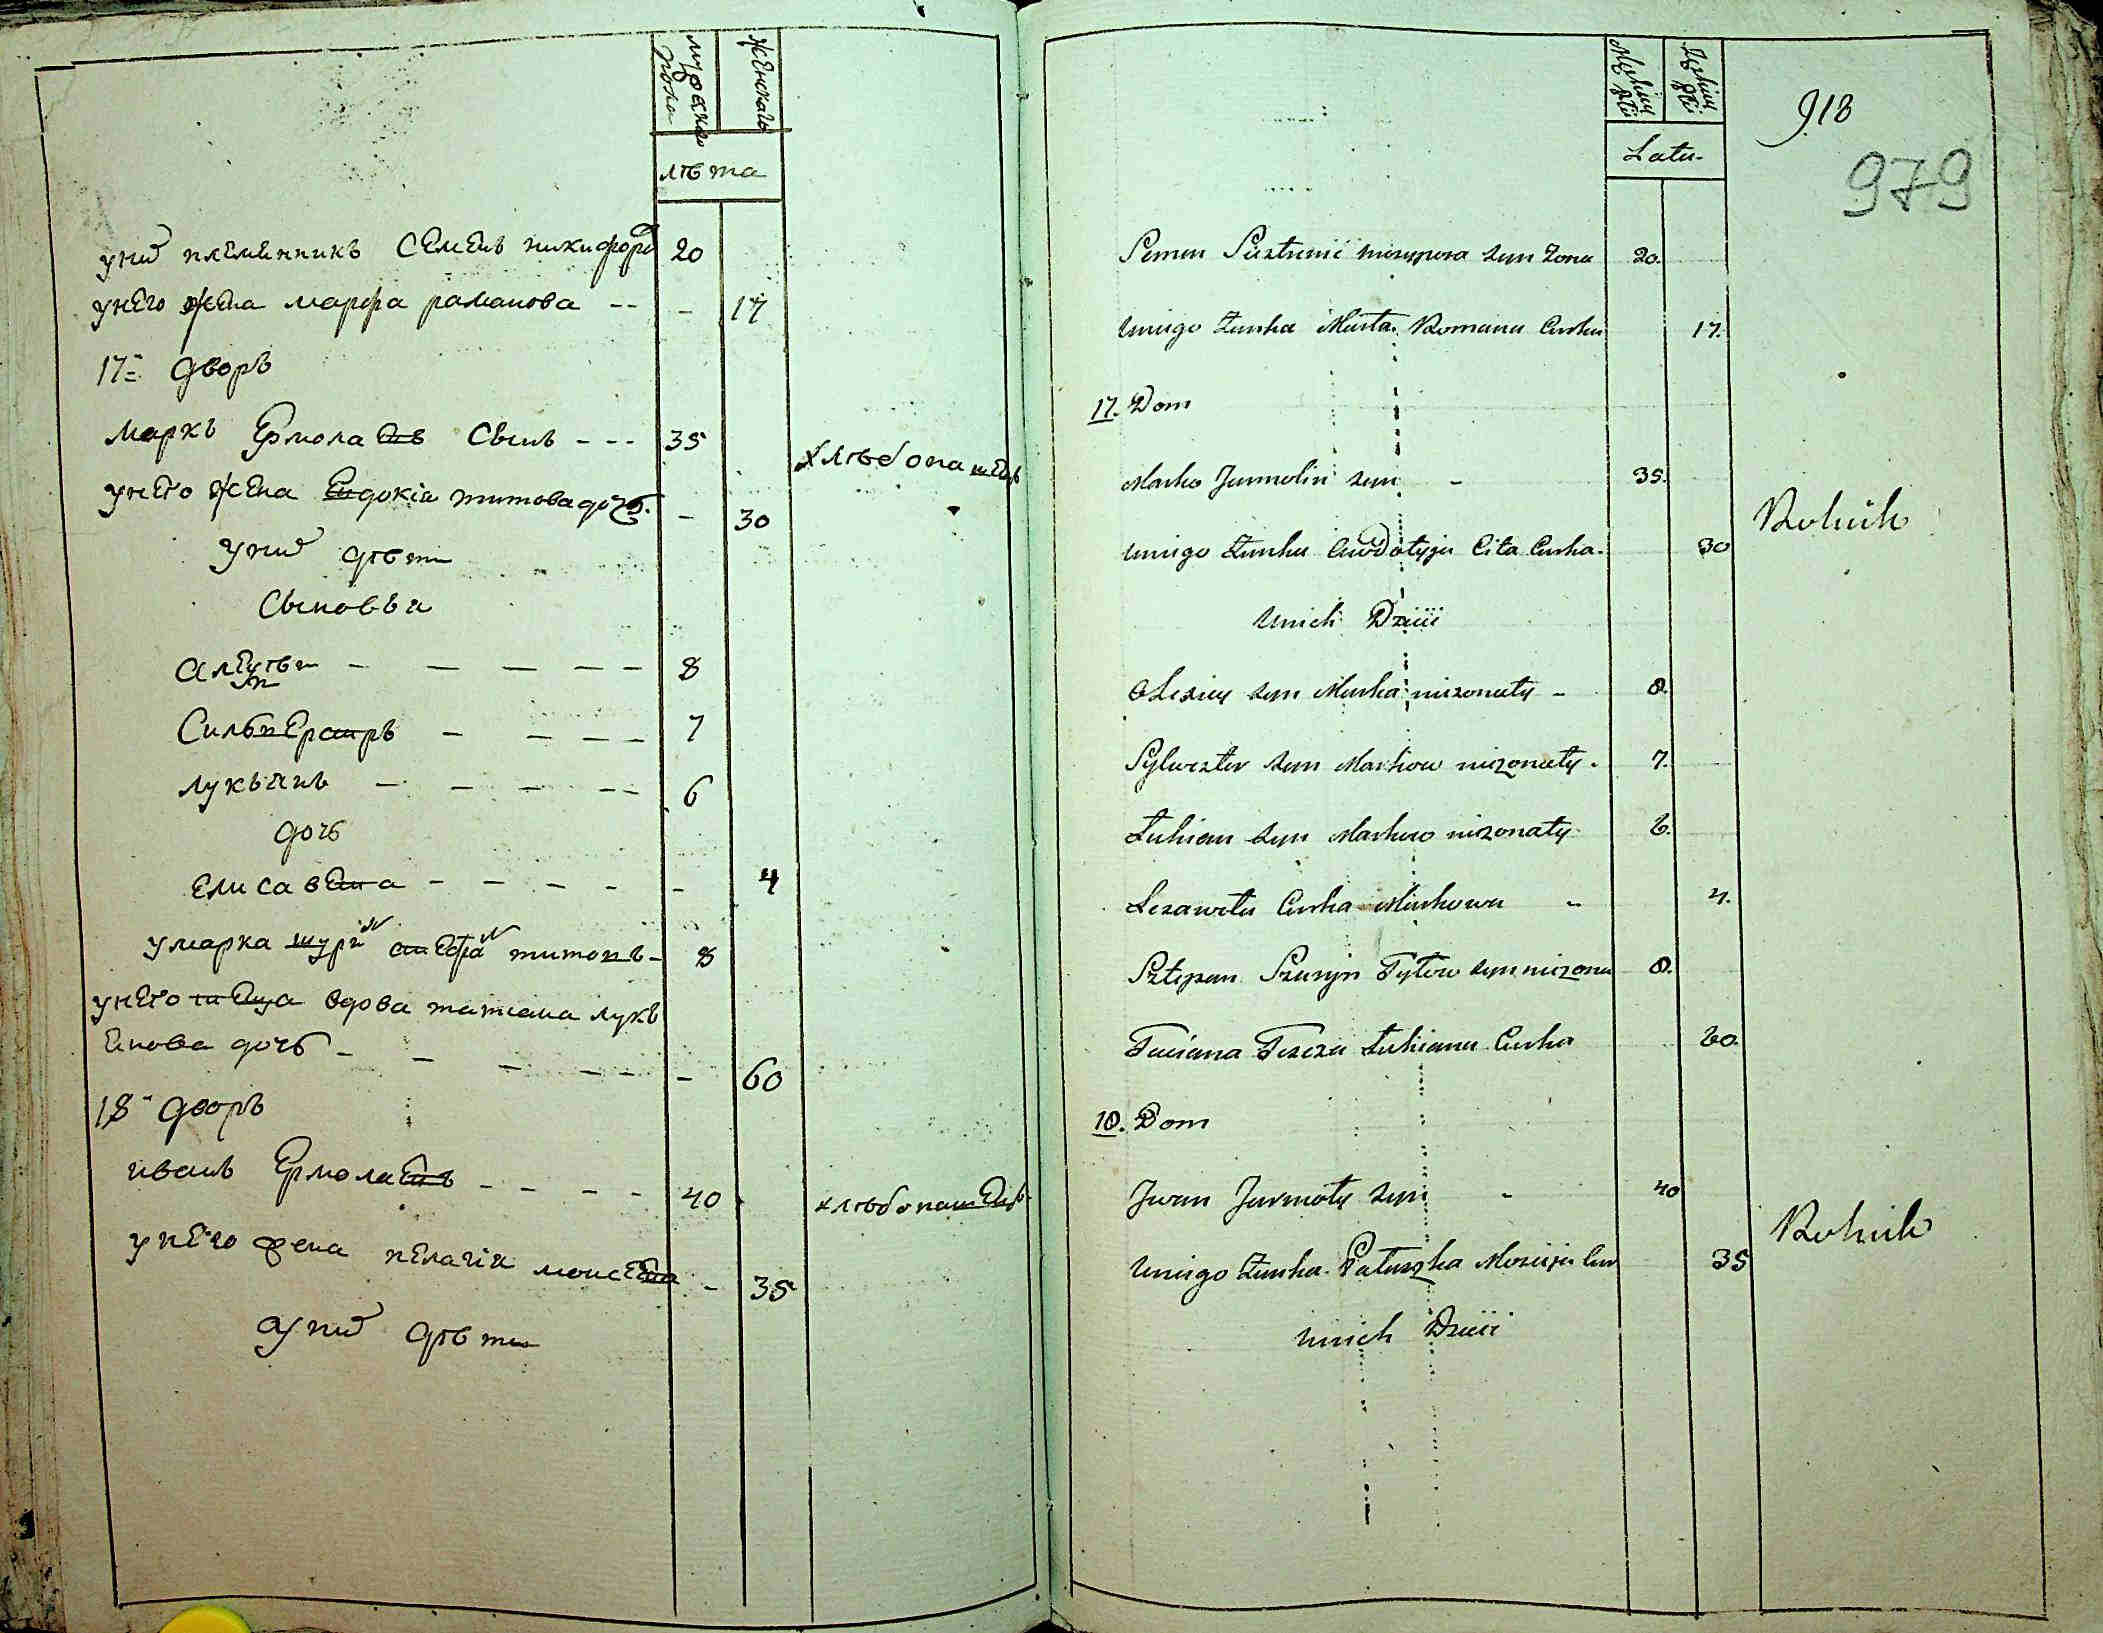 мужеска пола
женскаго
лѣта
у ниⷯ племенникъ Семенъ никифоро 20
у него жена марфа раманова -- - 17
17= дворъ
Маркъ Ермолаевъ сынъ --- 35
хлѣбопашецъ
у него жена Евдокія титова дочь. - 30
у ниⷯ дѣти
Сыновья
Алексѣи - - - - - 8
Сильвестръ - - - - - 7
лукьянъ - - - - - 6
дочь
Елисавета - - - - - - 4
у марка шуринъ стефанъ титовъ - 8
у него теща вдова татиана лукь
янова дочь - - - - - - 60
18- дворъ
иванъ Ермолаевъ - - - - 40
хлѣбопашецъ
у него жена пелагія моисеева - 35
у ниⷯ дѣти
Męskiey płci
Żeńskiey płci
Lata
913
979
Semen syn 20.
Uniego Żonka Marta Romana Curka 17.
17. Dom
Marko Jarmolin syn - 35.
Rolnik
Uniego Żonka Awdotyja Cita Curka. 30
Unich Dzieci
Olexiey syn Marka nieżonaty - 8.
Sylwester syn Markow nieżonaty. 7.
Łukian syn Markow nieżonaty 6.
Lezaweta Curka Markowa - 4.
Sztepan Szuryn Tytow syn nieżona 8.
Taciana Teszcza Łukiana Curka 60.
18. Dom
Jwan Jarmoły syn - 40
Rolnik
Uniego Żonka Pałaszka Mosieja Cur 35
Unich Dzieci